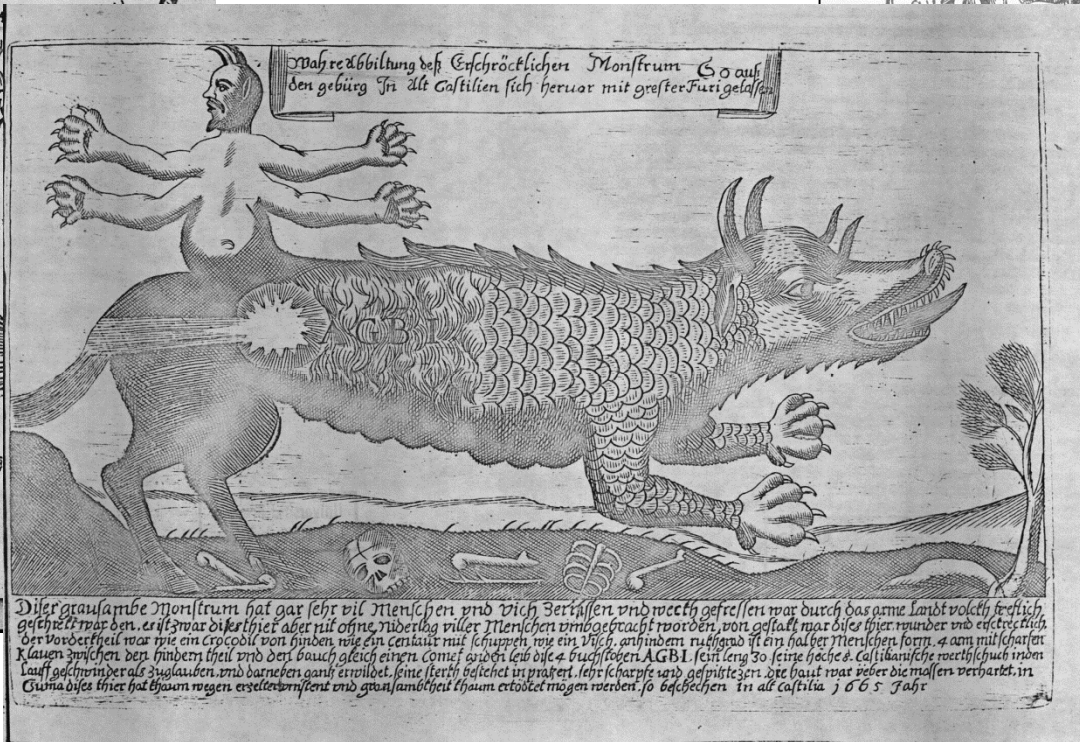 Wahre Abbiltung deß Erschröcklichen Monstrum So auß
den gebürg In Alt Castilien sich heruor mit grester Furi gelassen
AGBI
Diser grausambe Monstrum hat gar sehr vil Menschen vnd vich Zerrissen vnd gefressen war durch das arme Landt volckh
worden, es ist zwar dises thier aber nit ohne Niderlag viller Menschen vmbgebracht worden, von gestalt war dises thier wunder vnd erschrecklich
der Vordertheil war wie ein Crocodil von hinden wie ein Centaur mit schuppen wie ein Visch, anhindern ist ein halber Menschen form 4 arm mit scharfen
Klauen Zwischen den hindern theil vnd den bauch gleich einen Comet an den leib dise 4 buchstaben AGBI. sein leng 30 seine höche 8 Castilianische werchschuch in den
Lauff geschwinder als Zuglauben, vnd darneben gantz erwildet, seine sterch bestehet in pratzen, sehr scharpfe vnd gespitzte Zen, die haut war veber die massen verhartet, in
Suma dises thier hat khaum wegen vnd grausambkheit khaum ertödtet mögen werden. so beschechen In alt Castilia 1665 Jahr